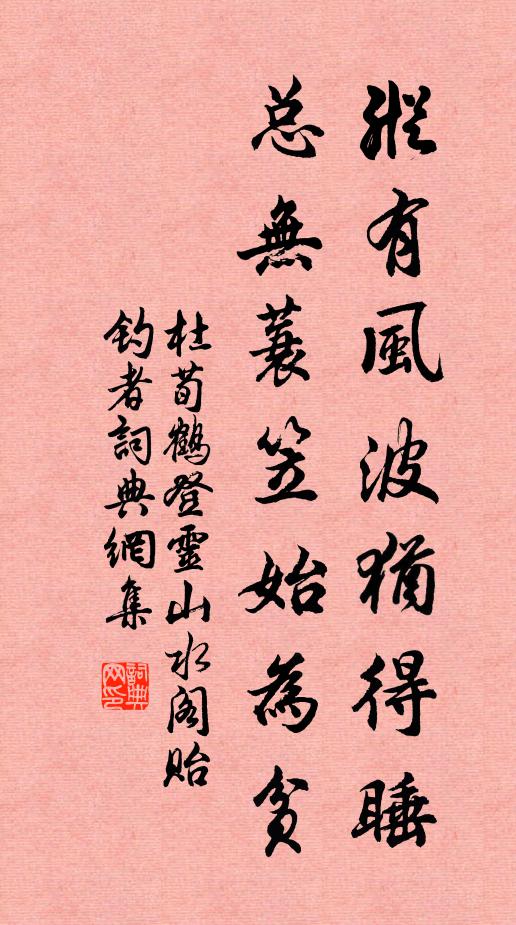 縱有風波猶得睡
总無蓑笠始為貧
杜荀鶴登靈山水阁貽
钓者詞典網集
詞典
网印